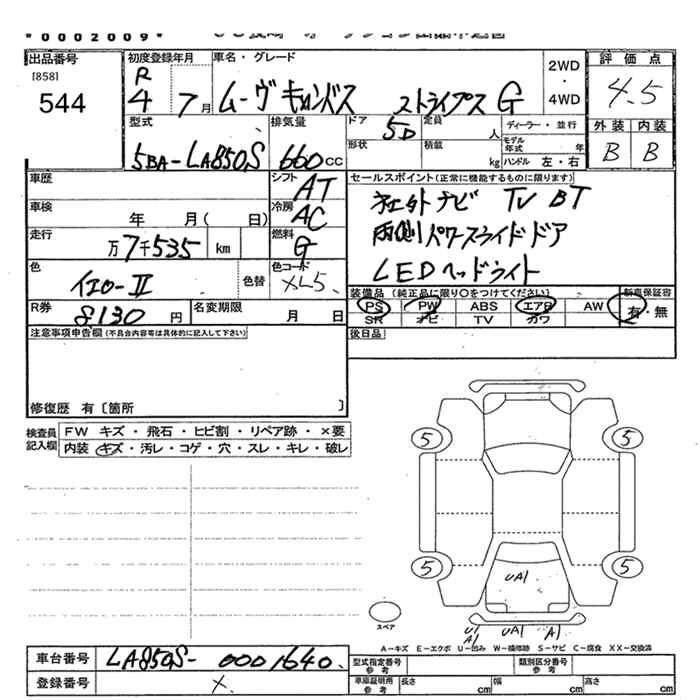 *0002009*
出品番号 初度登録年月 車名・グレード 2WD・4WD 評価点
[858] 544 R4 7月 ムーヴキャンバス ストライプス G 4.5
型式 排気量 ドア 5D 定員 人 ディーラー・並行 外装 内装
5BA-LA850S 660cc 形状 積載 kg モデル年式 年 ハンドル 左・右 B B
車歴 シフト AT セールスポイント(正常に機能するものに限ります)
車検 年 月( 日) 冷房 AC 社外ナビ TV BT
走行 万7千535 km 燃料 G 両側パワースライドドア
色 イエローII 色替 色コード XL5 LEDヘッドライト
R券 8130円 名変期限 月 日 装備品(純正品に限り○をつけてください) 新車保証書
PS PW ABS エアB AW 有・無
SR ナビ TV カワ
注意事項申告欄(不具合内容等は具体的に記入して下さい) 後日品
修復歴 有〔箇所 〕
検査員記入欄 FW キズ・飛石・ヒビ割・リペア跡・×要
内装 キズ・汚レ・コゲ・穴・スレ・キレ・破レ
5 5
5 5
UA1
スペア
U1 A1 UA1 A1
A-キズ E-エクボ U-凹み W-補修跡 S-サビ C-腐食 XX-交換済
車台番号 LA850S-0001640 型式指定番号 参考 類別区分番号 参考
登録番号 × 車庫証明用 参考 長さ cm 幅 cm 高さ cm